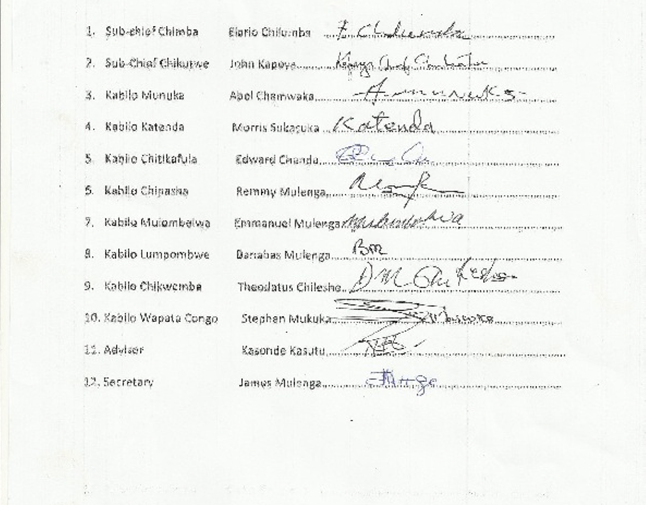 1. Sub-chief Chimba Elario Chilumba
2. Sub-Chief Chikutwe John Kapoya
3 Kabilo Munuka Abel Chamwaka
4. Kabilo Katenda Morris Sukasuka Katenda
5. Kabilo Chitikafula Edward Chanda
6. Kabilo Chipasha Remmy Mulenga
7. Kabilo Mulombelwa Emmanuel Mulenga
8. Kabilo Lumpombwe Banabas Mulenga BM
9. Kabilo Chikwemba Theodatus Chileshe
10. Kabilo Wapata Congo Stephen Mukuka
11. Adviser Kasonde Kasutu
12. Secretary James Mulenga